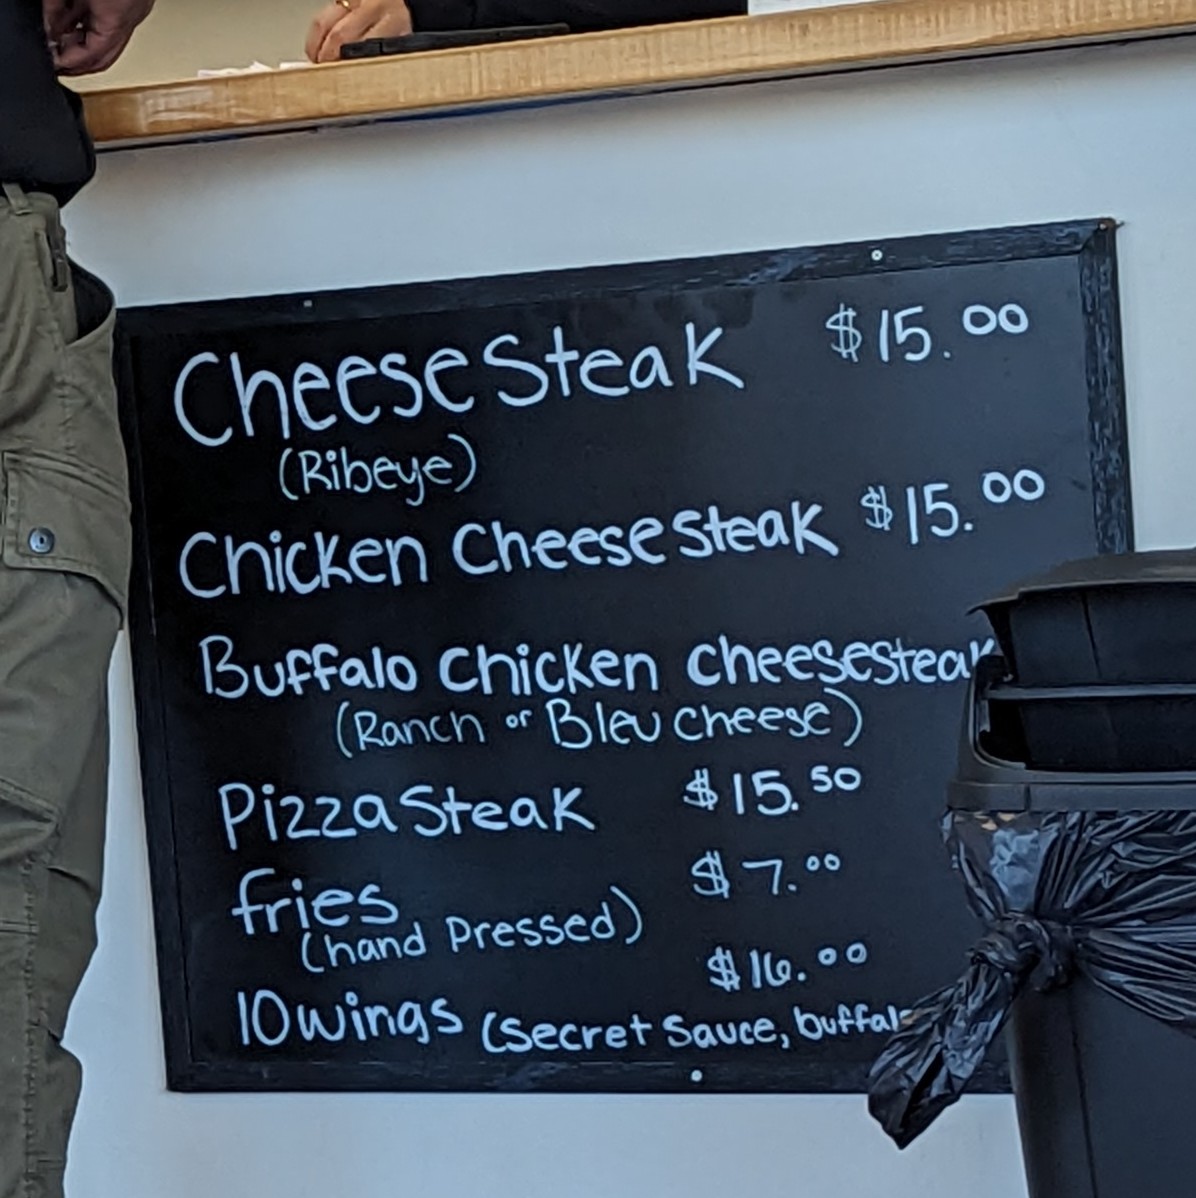 CheeseSteak $15.00
(Ribeye)
Chicken CheeseSteak $15.00
Buffalo Chicken Cheesesteak
(Ranch or Bleu Cheese)
Pizza Steak $15.50
fries $7.00
(hand pressed)
$16.00
10 wings (Secret Sauce,